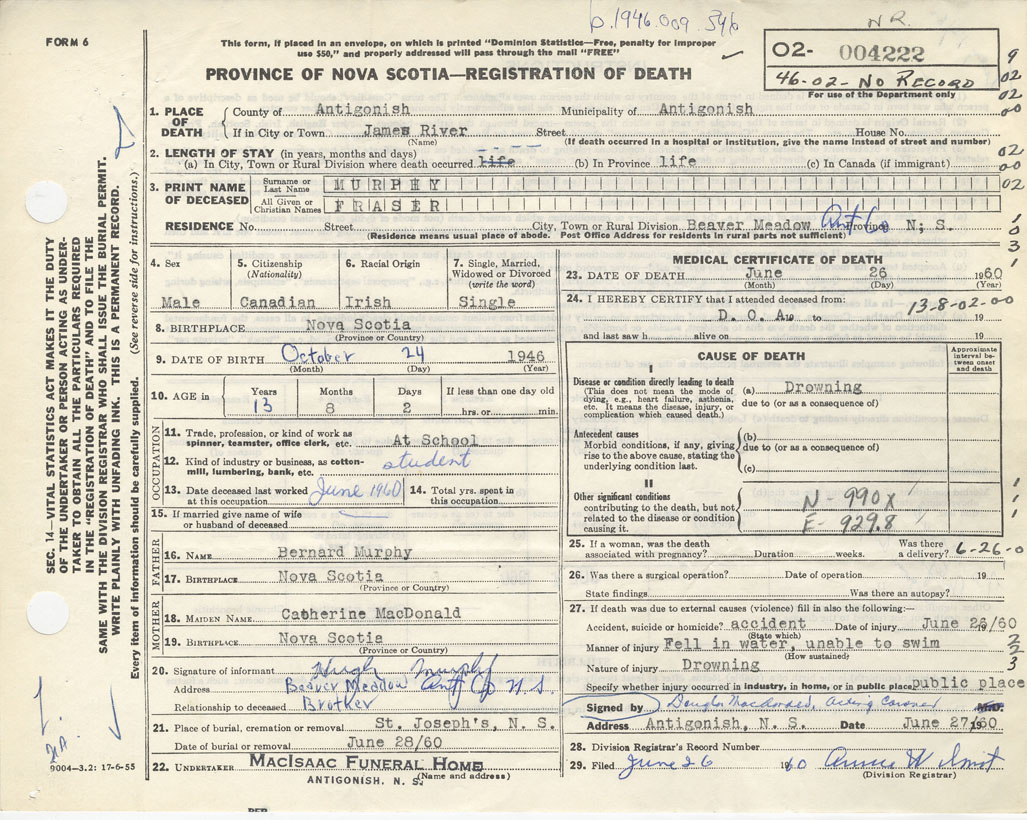 b.1946.009 346
N R.
FORM 6
This form, if placed in an envelope, on which is printed "Dominion Statistics—Free, penalty for improper
use $50," and properly addressed will pass through the mail "FREE"
02- 004222
46-02- NO RECORD
For use of the Department only
PROVINCE OF NOVA SCOTIA—REGISTRATION OF DEATH
9
02
02
00
02
00
02
1. PLACE OF DEATH
County of Antigonish Municipality of Antigonish
If in City or Town James River Street House No.
(Name) (If death occurred in a hospital or institution, give the name instead of street and number)
2. LENGTH OF STAY (in years, months and days)
(a) In City, Town or Rural Division where death occurred life (b) In Province life (c) In Canada (if immigrant)
3. PRINT NAME OF DECEASED
Surname or Last Name MURPHY
All Given or Christian Names FRASER
RESIDENCE No. Street City, Town or Rural Division Beaver Meadow Ant Co Province N; S.
(Residence means usual place of abode. Post Office Address for residents in rural parts not sufficient)
4. Sex
Male
5. Citizenship
(Nationality)
Canadian
6. Racial Origin
Irish
7. Single, Married,
Widowed or Divorced
(write the word)
Single
8. BIRTHPLACE Nova Scotia
(Province or Country)
9. DATE OF BIRTH October 24 1946
(Month) (Day) (Year)
10. AGE in Years Months Days If less than one day old
13 8 2 hrs. or min.
OCCUPATION
11. Trade, profession, or kind of work as
spinner, teamster, office clerk, etc. At School
12. Kind of industry or business, as cotton-
mill, lumbering, bank, etc. student
13. Date deceased last worked
at this occupation June 1960
14. Total yrs. spent in
this occupation
15. If married give name of wife
or husband of deceased
FATHER
16. NAME Bernard Murphy
17. BIRTHPLACE Nova Scotia
(Province or Country)
MOTHER
18. MAIDEN NAME Catherine MacDonald
19. BIRTHPLACE Nova Scotia
(Province or Country)
20. Signature of informant Hugh Murphy
Address Beaver Meadow Ant Co N.S.
Relationship to deceased Brother
21. Place of burial, cremation or removal St. Joseph's, N. S.
Date of burial or removal June 28/60
22. UNDERTAKER MACISAAC FUNERAL HOME
ANTIGONISH. N. S. (Name and address)
MEDICAL CERTIFICATE OF DEATH
23. DATE OF DEATH June 26 1960
(Month) (Day) (Year)
24. I HEREBY CERTIFY that I attended deceased from:
13-8-02-00
D. O. A. 19 to 19
and last saw h alive on 19
CAUSE OF DEATH
Approximate
interval be-
tween onset
and death
I
Disease or condition directly leading to death
(This does not mean the mode of
dying, e.g., heart failure, asthenia,
etc. It means the disease, injury, or
complication which caused death.)
(a) Drowning
due to (or as a consequence of)
Antecedent causes
Morbid conditions, if any, giving
rise to the above cause, stating the
underlying condition last.
(b)
due to (or as a consequence of)
(c)
II
Other significant conditions
contributing to the death, but not
related to the disease or condition
causing it.
N - 990X
E - 929.8
25. If a woman, was the death
associated with pregnancy? Duration weeks. Was there
a delivery?
6-26-0
26. Was there a surgical operation? Date of operation 19
State findings Was there an autopsy?
27. If death was due to external causes (violence) fill in also the following:—
Accident, suicide or homicide? accident Date of injury June 26/60
(State which)
Manner of injury Fell in water, unable to swim
(How sustained)
Nature of injury Drowning
Specify whether injury occurred in industry, in home, or in public place public place
2
2
3
Signed by Douglas MacDonald, acting Coroner M.D.
Address Antigonish, N. S. Date June 27/60
28. Division Registrar's Record Number
29. Filed June 26 1960
(Division Registrar)
SEC. 14—VITAL STATISTICS ACT MAKES IT THE DUTY
OF THE UNDERTAKER OR PERSON ACTING AS UNDER-
TAKER TO OBTAIN ALL THE PARTICULARS REQUIRED
IN THE "REGISTRATION OF DEATH" AND TO FILE THE
SAME WITH THE DIVISION REGISTRAR WHO SHALL ISSUE THE BURIAL PERMIT.
WRITE PLAINLY WITH UNFADING INK. THIS IS A PERMANENT RECORD.
Every item of information should be carefully supplied. (See reverse side for instructions.)
9004—3.2: 17-6-55